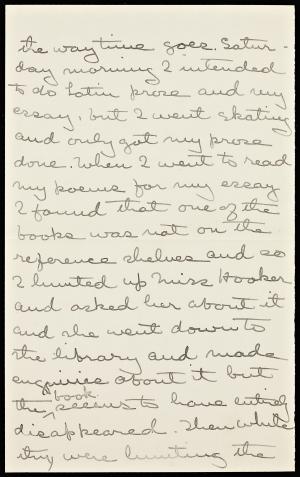 the way time goes. Satur-
day morning I intended
to do Latin prose and my
essay, but I went skating
and only got my prose
done. When I went to read
my poems for my essay
I found that one of the
books was not on the
reference shelves and so
I hunted up Miss Hooker
and asked her about it
and she went down to
the library and made
enquiries about it but
the book seems to have entirely
disappeared. Then while
they were hunting the